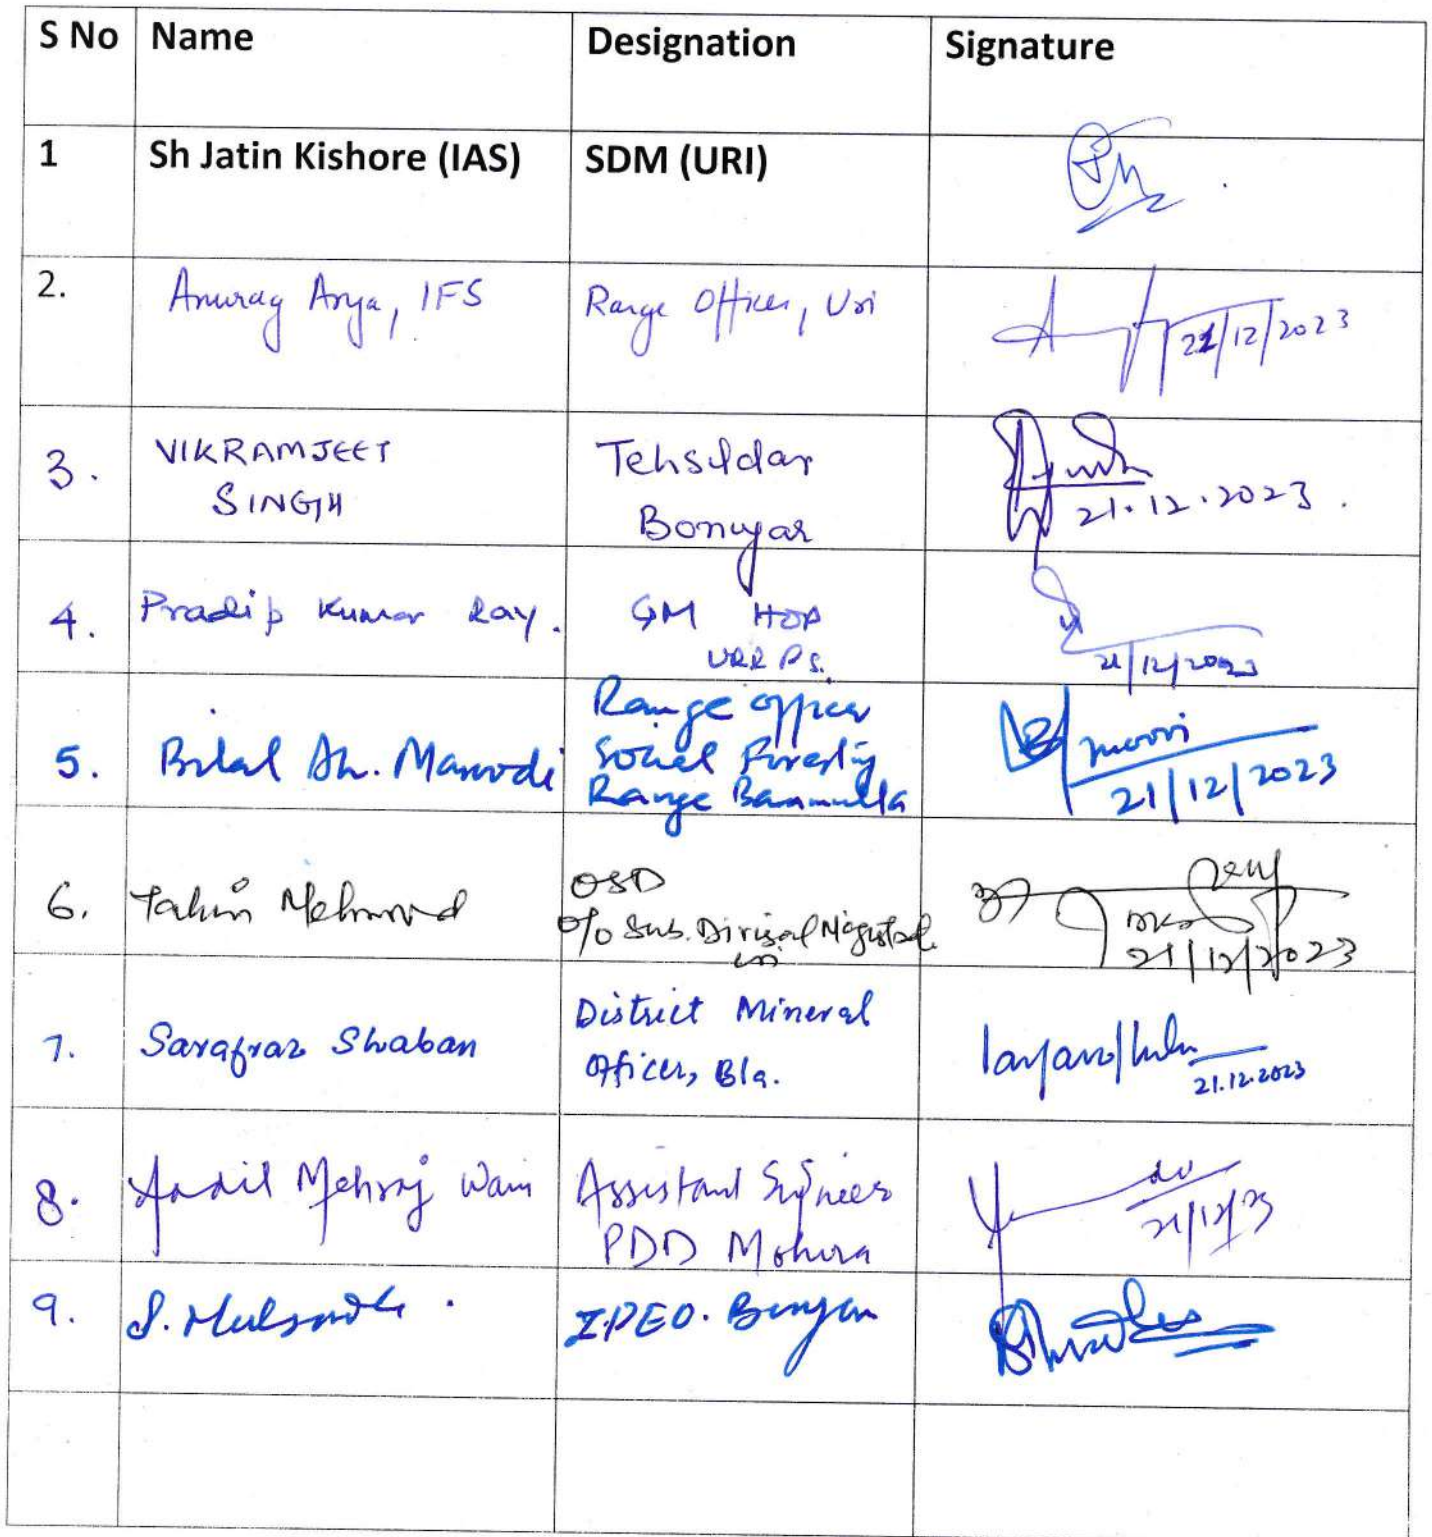 S No Name Designation Signature
1 Sh Jatin Kishore (IAS) SDM (URI)
2. Anurag Arya, IFS Range Officer, Uri 21/12/2023
3. VIKRAMJEET Tehsildar
SINGH Boniyar 21.12.2023.
4. Pradip Kumar Ray. GM HOP
21/12/2023
Range officer
5. Bilal Ah. Social Forestry
Range Baramulla 21/12/2023
6. Mehmood OSD
O/o Sub. Divisional Magistrate
21/12/2023
7. Sarafraz Shaban District Mineral
Officer, Bla. 21.12.2023
8. Aadil Mehraj Wani Assistant Engineer
PDD Mohura 21/12/23
9. Z.P.E.O.